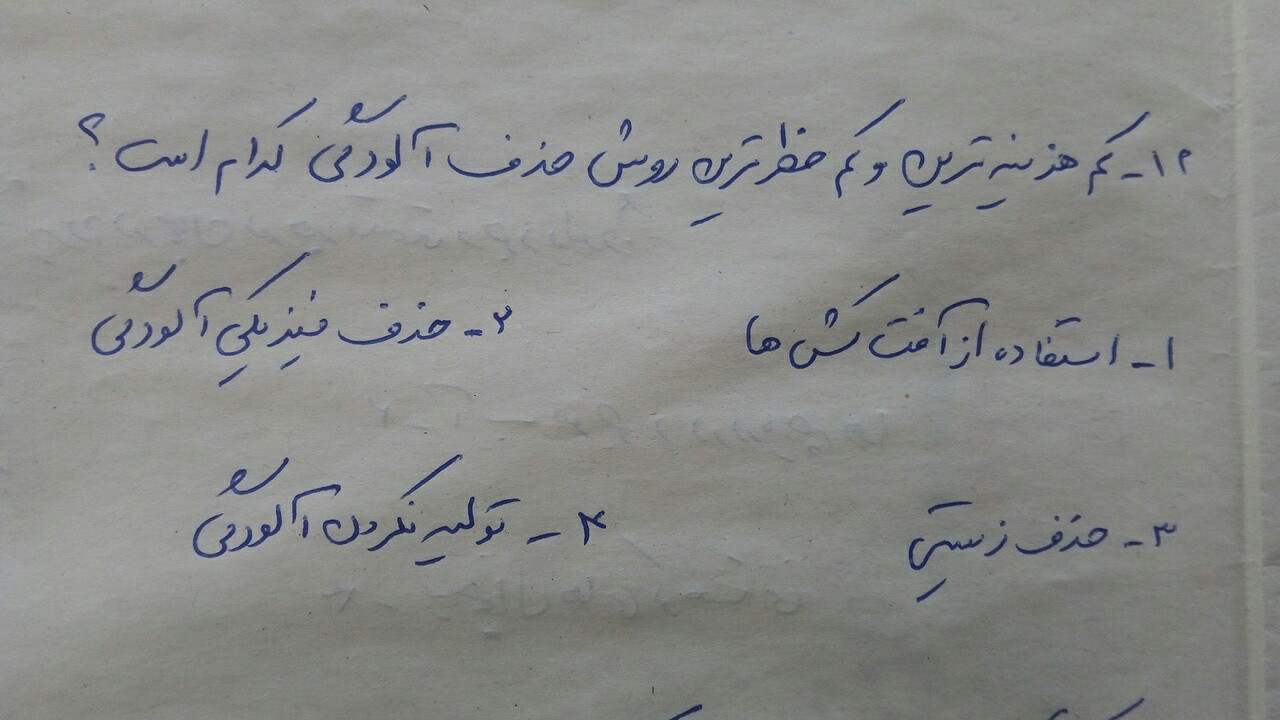 ۱۲- کم هزینه ترین و کم خطرترین روش حذف آلودگی کدام است؟
۱- استفاده از آفت کش ها ۲- حذف فیزیکی آلودگی
۳- حذف زیستی ۴- تولید نکردن آلودگی